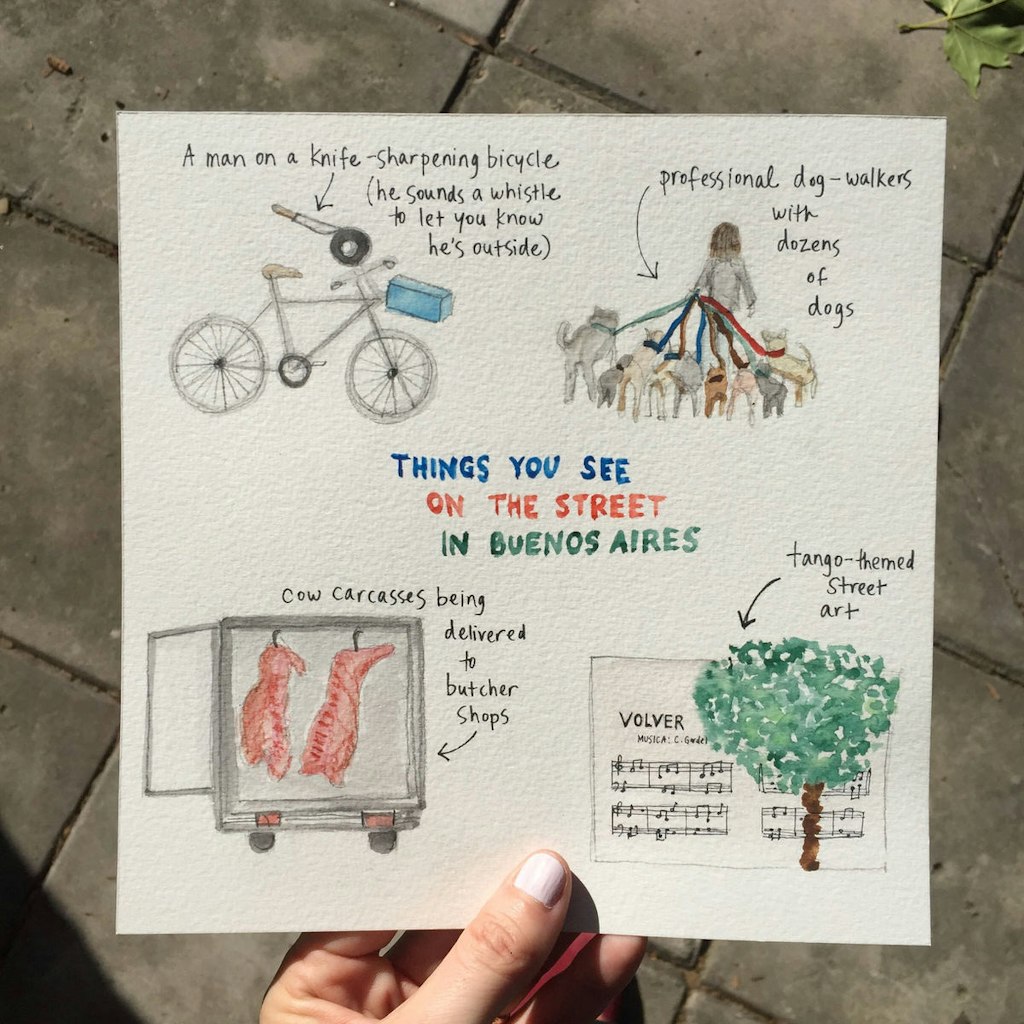 A man on a knife-sharpening bicycle
(he sounds a whistle
to let you know
he's outside)
professional dog-walkers
with
dozens
of
dogs
THINGS YOU SEE
ON THE STREET
IN BUENOS AIRES
cow carcasses being
delivered
to
butcher
shops
tango-themed
street
art
VOLVER
MUSICA: C. Gardel